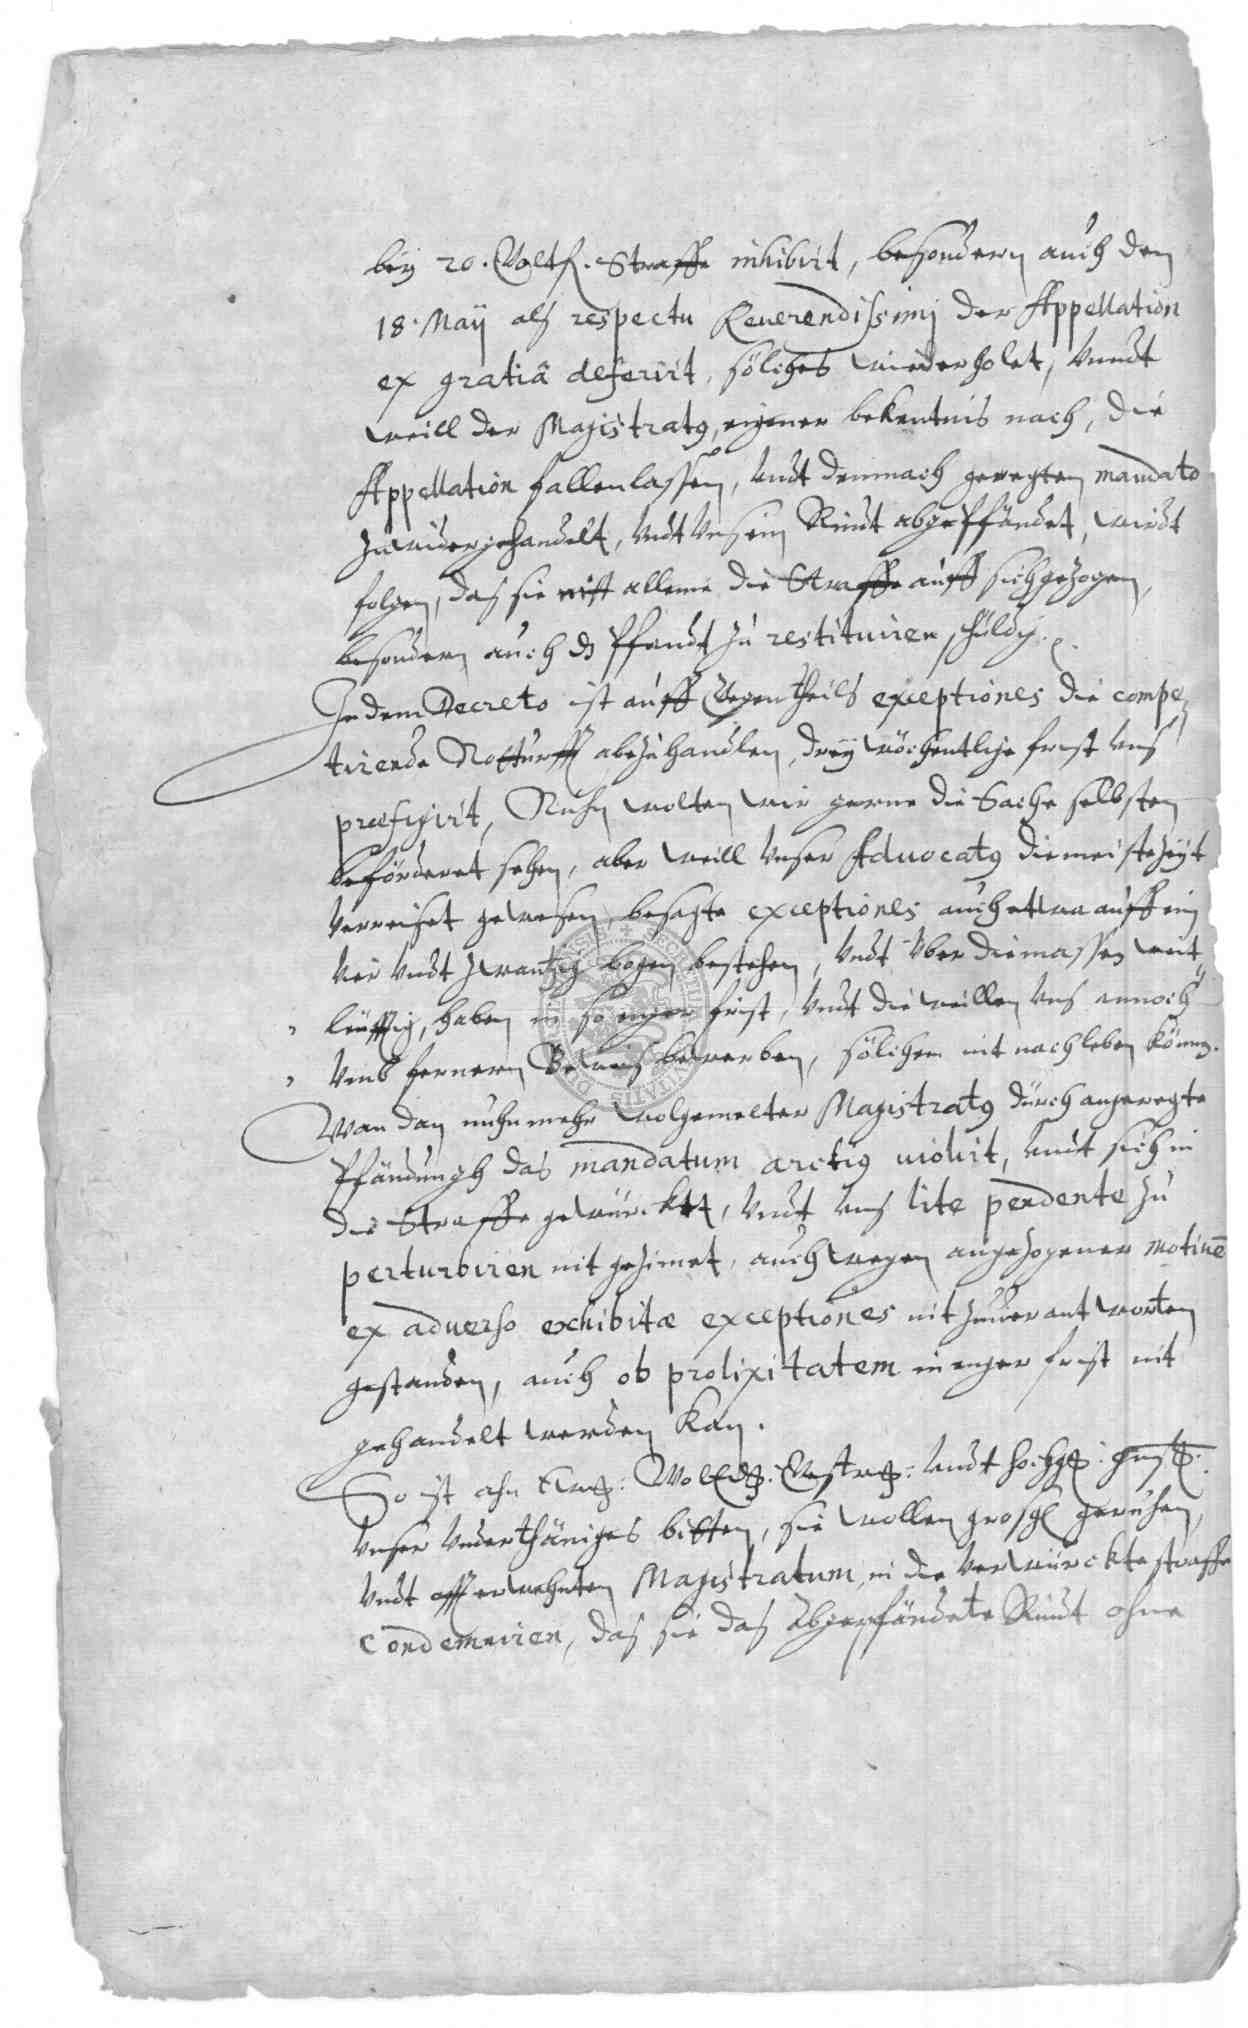 bey 20. Goltfl. Straffe inhibirt, besondern auch den
18. Maÿ als respectu Reuerendissimj der Appellation
ex gratiâ deferirt, sölches wiederholet, Vnndt
weill der Magistratq, eigener bekentnis nach, die
Appellation fallenlassen, Vndt demnach geregten mandato
zuwidergehandelt, Vndt Vns ein Rindt abgepfändet, wirdt
folgen, das sie nitt alleine die Straffe auff sichgezogen,
besondern auch dz Pfandt zu restituiren schuldig.
In dem Decreto ist auff Gegentheils exceptiones die compe
tirende Notturfft abzuhandlen, dreÿ wöchentlige frist Vns
præfigirt, Nuhn wolten wir gerne die Sache selbsten
beförderet sehen, aber weill Vnser Aduocatq die meiste Zeyt
Verreiset gewesen, besagte exceptiones auch etwa auff ein
Vier Vndt zwantzig bogen bestehen, Vndt Vber die massen weit
leufftig, haben in so enger frist, Vndt dieweillen Vns annoch
Vmb fernern Beweis bewerben, sölchem nit nachleben können.
Wan dan nuhnmehr wolgemelter Magistratq durch angeregte
Pfändungh das mandatum arctiq uiolirt, Vndt sich in
die Straffe gewürcktt, Vndt Vns lite pendente zu
perturbiren nit gezimet, auch wegen angezogener motiuē
ex aduerso exhibitæ exceptiones nit zuuerantworten
gestanden, auch ob prolixitatem in enger frist nit
gehandelt werden kan.
So ist ahn Ewg: WolEdg: Gestrg: Vndt hochg: gunstg:
Vnser Vnderthäniges bitten, sie wollen grosgl geruhen,
Vndt offt erwehnten Magistratum, in die Verwürckte straffe
condemniren, das sie das abgepfändete Rindt ohne